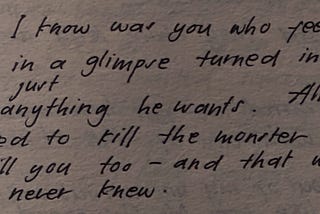 I know was you who
in a glimpse turned in
just
anything he wants. Al
ed to kill the monster
ll you too – and that w
never knew.